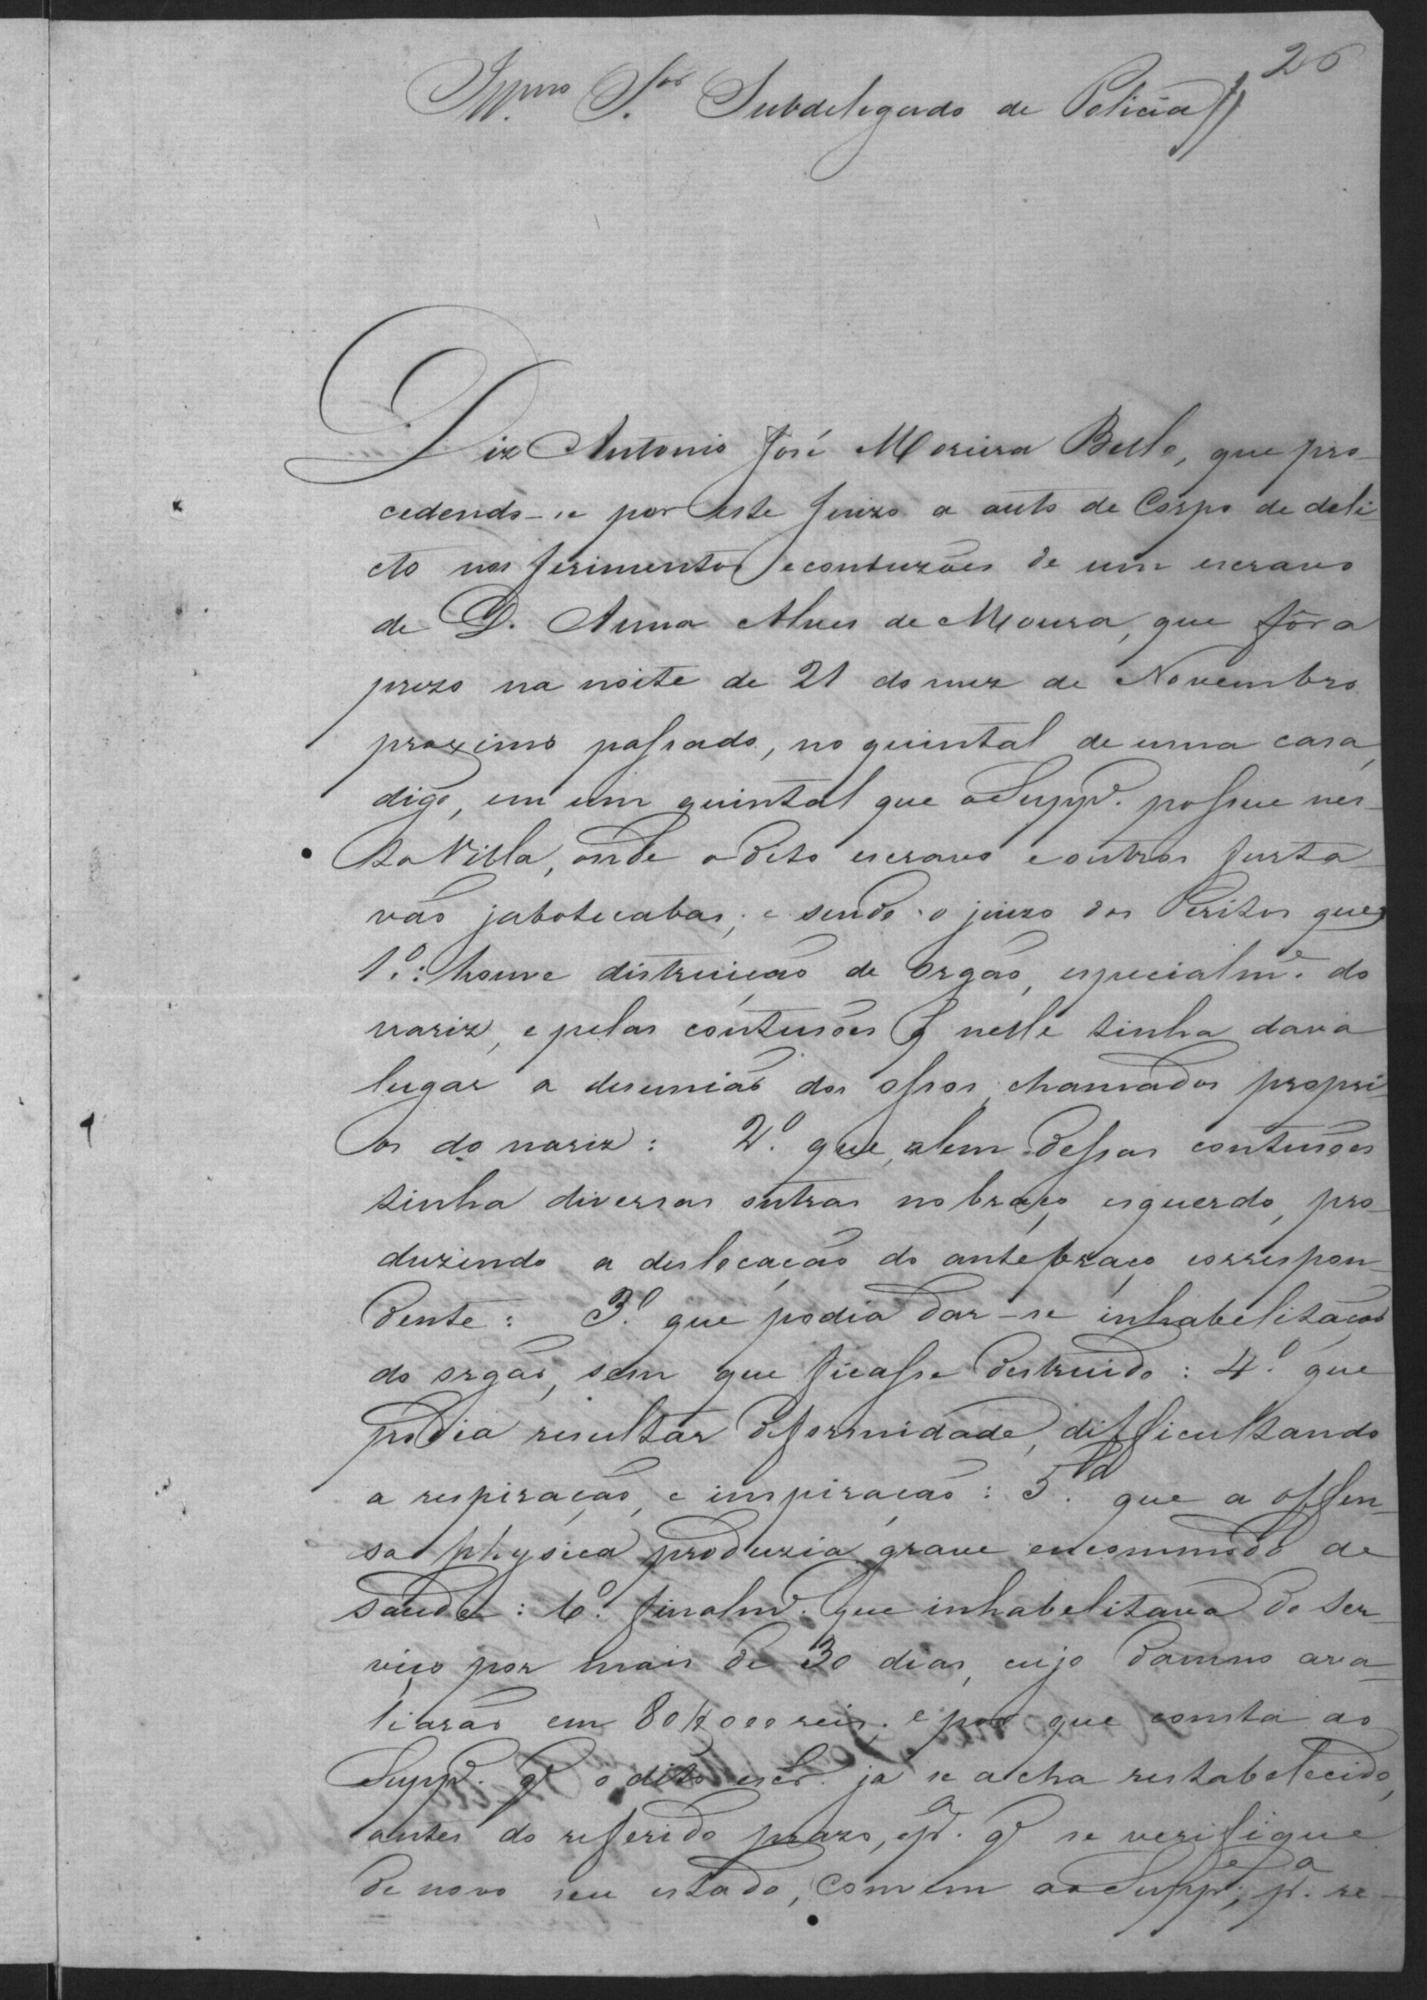 26
Illmo. Sor. Subdelegado de Policia
Diz Antonio José Moreira Bello, que pro-
cedendo-se por este Juizo a auto de Corpo de deli-
cto nos ferimentos e contuzões de um escravo
de D. Anna Alves de Moura, que fôra
prezo na noite de 21 do mez de Novembro
proximo passado, no quintal de uma casa,
digo, em um quintal que o Suppe. possue nes-
ta Villa, onde o dito escravo e outros furta-
vão jaboticabas; e sendo o juizo dos Peritos que
1.º: houve distruicão de orgão, especialme. do
nariz, e pelas contusões q nelle tinha dava
lugar a desunião dos ossos chamados propri-
os do nariz: 2.º que, alem dessas contusões
tinha diversas outras no braço esquerdo, pro-
duzindo a deslocação do antebraço correspon-
dente: 3.º que podia dar-se inhabelitação
do orgão, sem que ficasse destruido: 4.º que
podia resultar deformidade, difficultando
a respiração, e inspiração: 5.º que a offen-
sa physica produzia grave encommodo de
saude: 6.º finalme. que inhabelitava do ser-
viço por mais de 30 dias, cujo damno ava-
liarão em 80$000 reis; e por que consta ao
Suppe. qe o dito escro. já se acha restabelecido,
antes do referido prazo, e pa. qe se verifique
de novo seu estado, convem ao Suppe., pa. re-